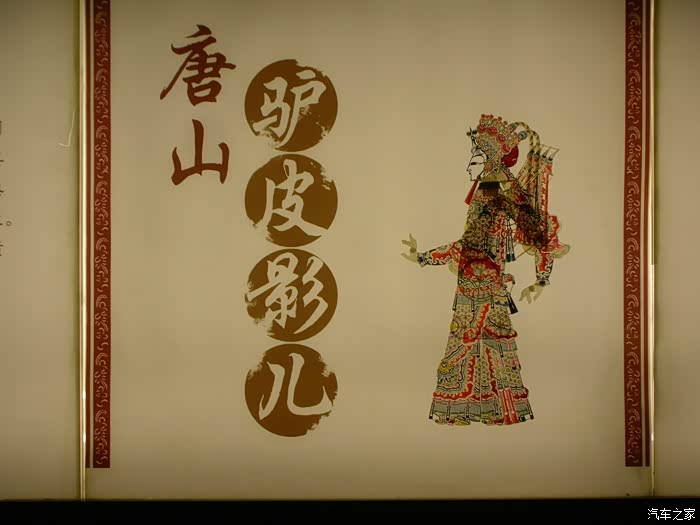 唐山
驴皮影儿
汽车之家